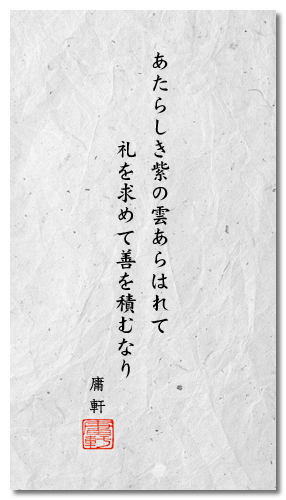 あたらしき紫の雲あらはれて
礼を求めて善を積むなり
庸軒